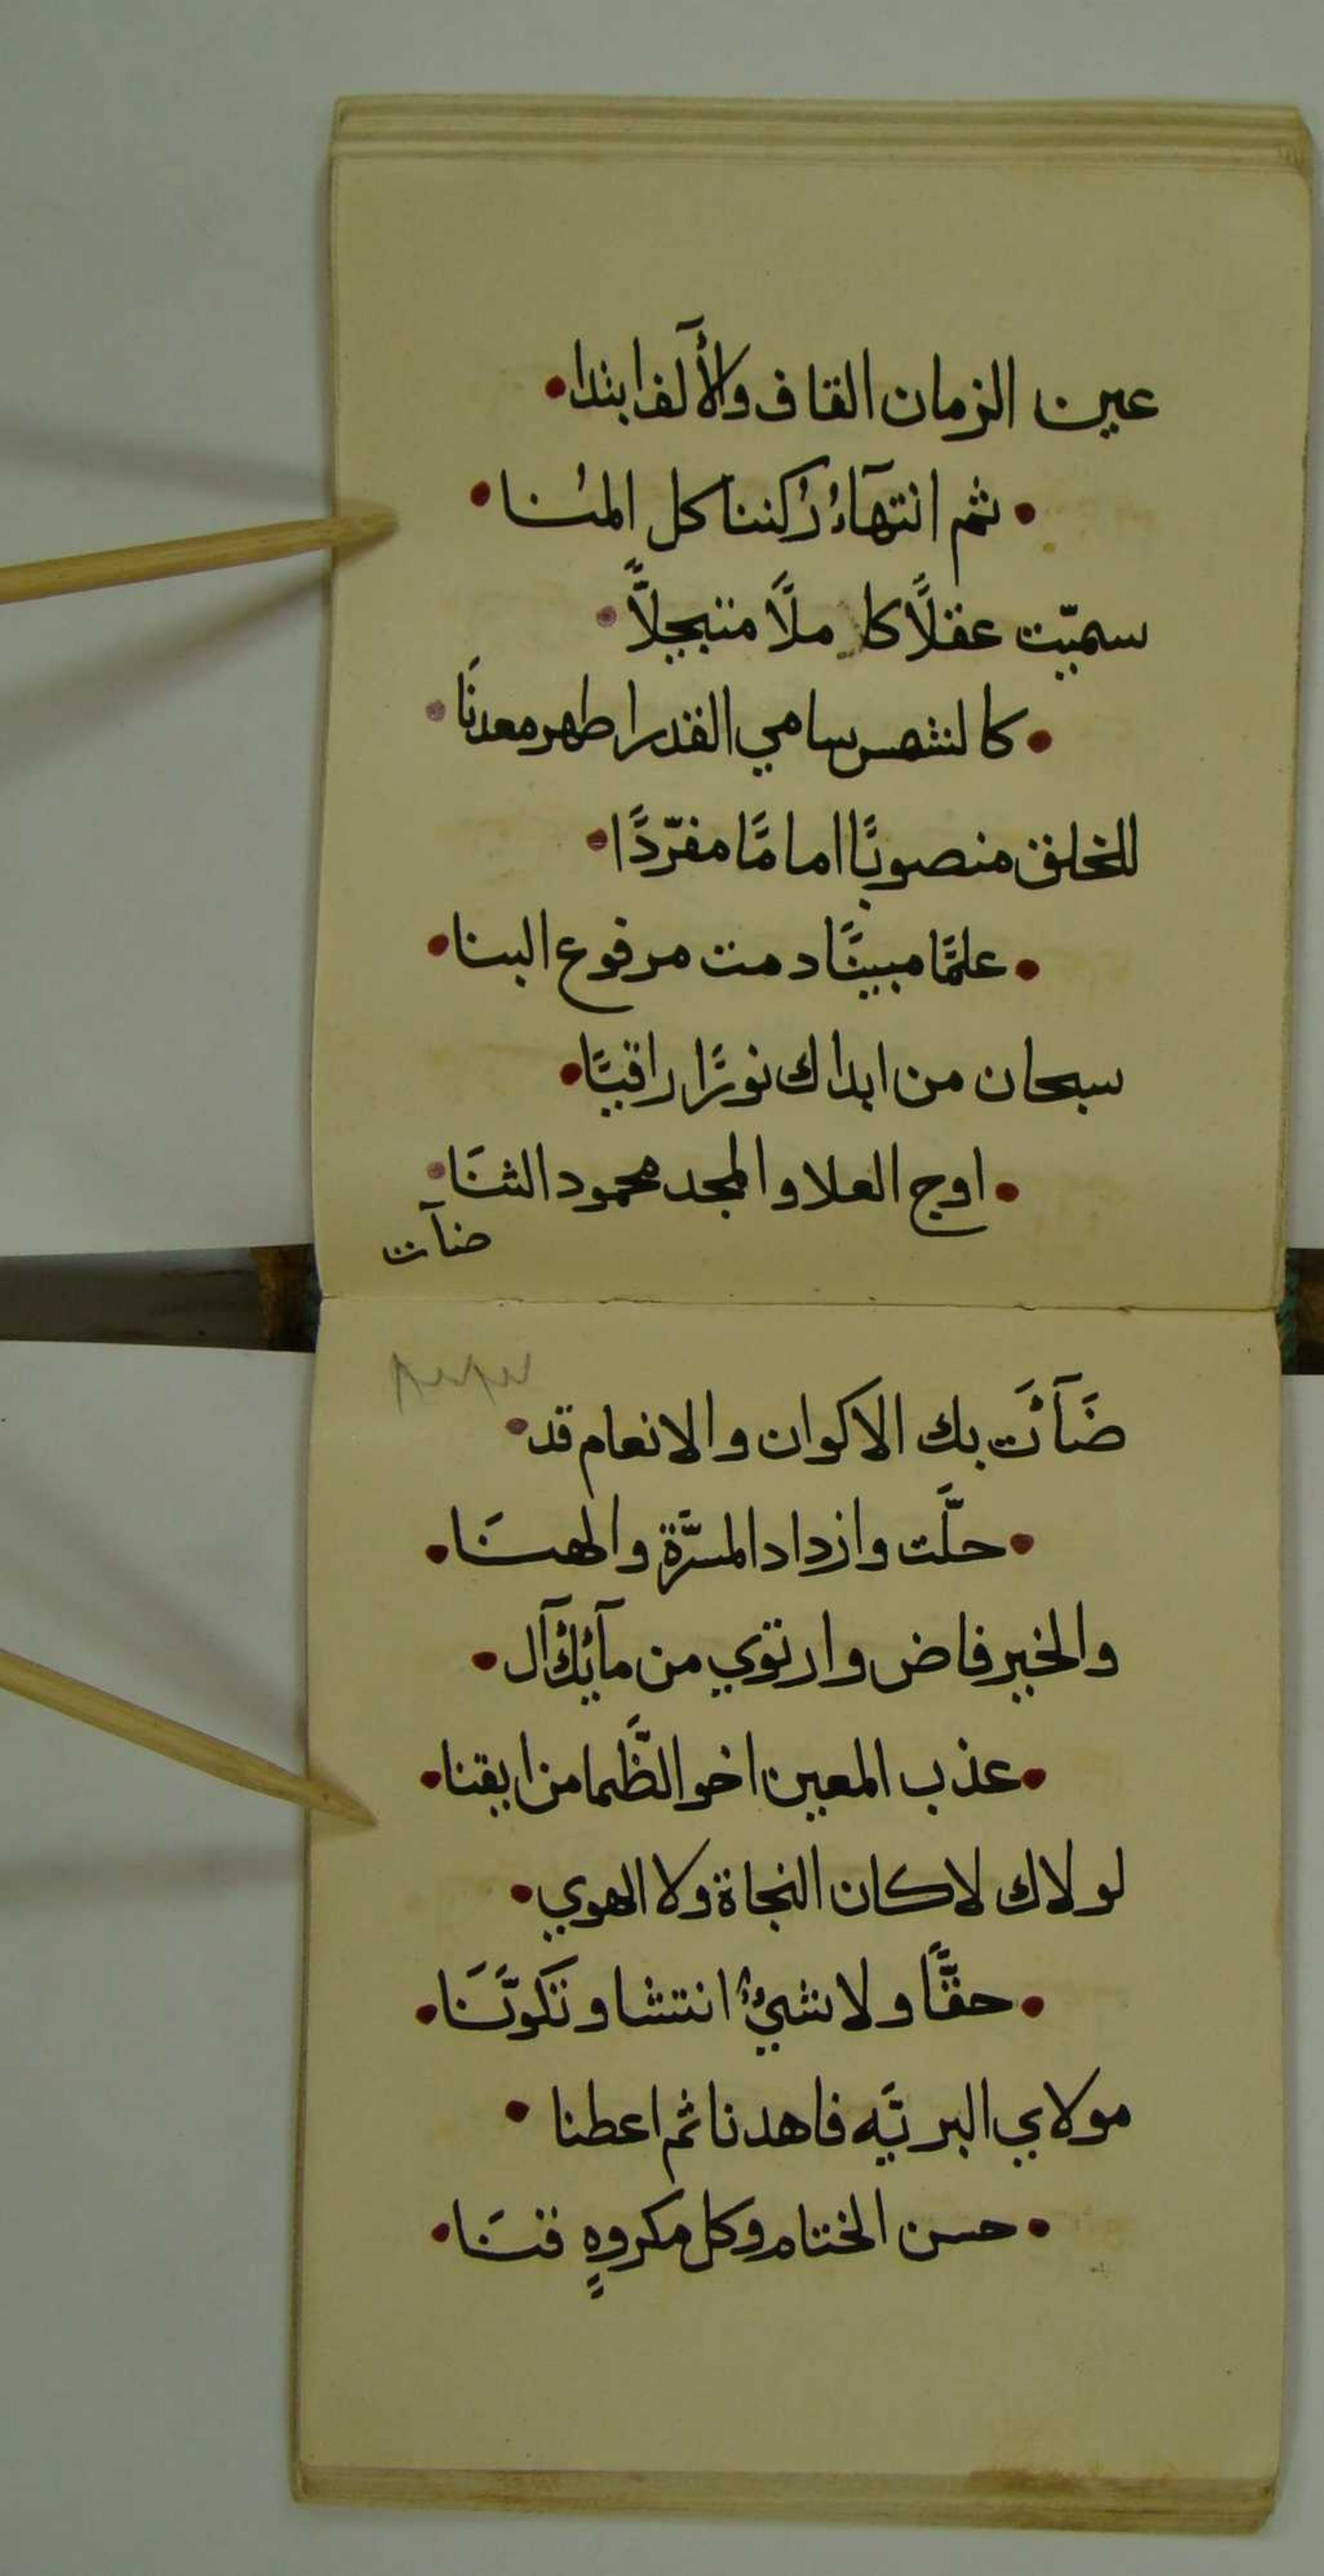 عين الزمان القاف والأَلف ابتدا
ثم انتهآءُ رُكننا كل المُنا
سميّت عقلًا كاملًا متبجلًّا
كالشمس سامي القدر اطهر معدنَا
للخلق منصوبًا امامًا مفرّدًا
علمًا مبينًا دمت مرفوع البنا
سبحان من ابداك نورًا راقيًا
اوج العلا والمجد محمود الثنَا
ضآت
ضَآئَت بك الاكوان والانعام قد
حلَّت وازداد المسرَّة والهنَا
والخير فاض وارتوي من مآئِك آل
عذب المعين اخو الظَّما من ايقنا
لولاك لا كان النجاة ولا الهوي
حقًّا ولا شيءٌ انتشا وتَكوَّنَا
مولاي البريَّه فاهدنا ثم اعطنا
حسن الختام وكل مكروهٍ فنَا